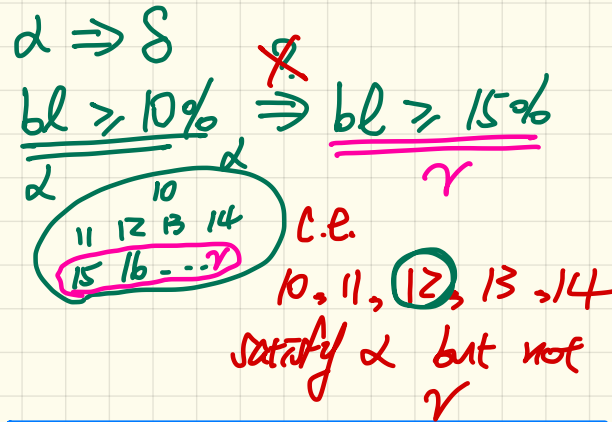 α ⇒ δ
?
bl ⩾ 10% ⇒ bl ⩾ 15%
α α γ
10
11 12 13 14
15 16 - - - γ
c.e.
10, 11, 12, 13, 14
satisfy α but not
γ